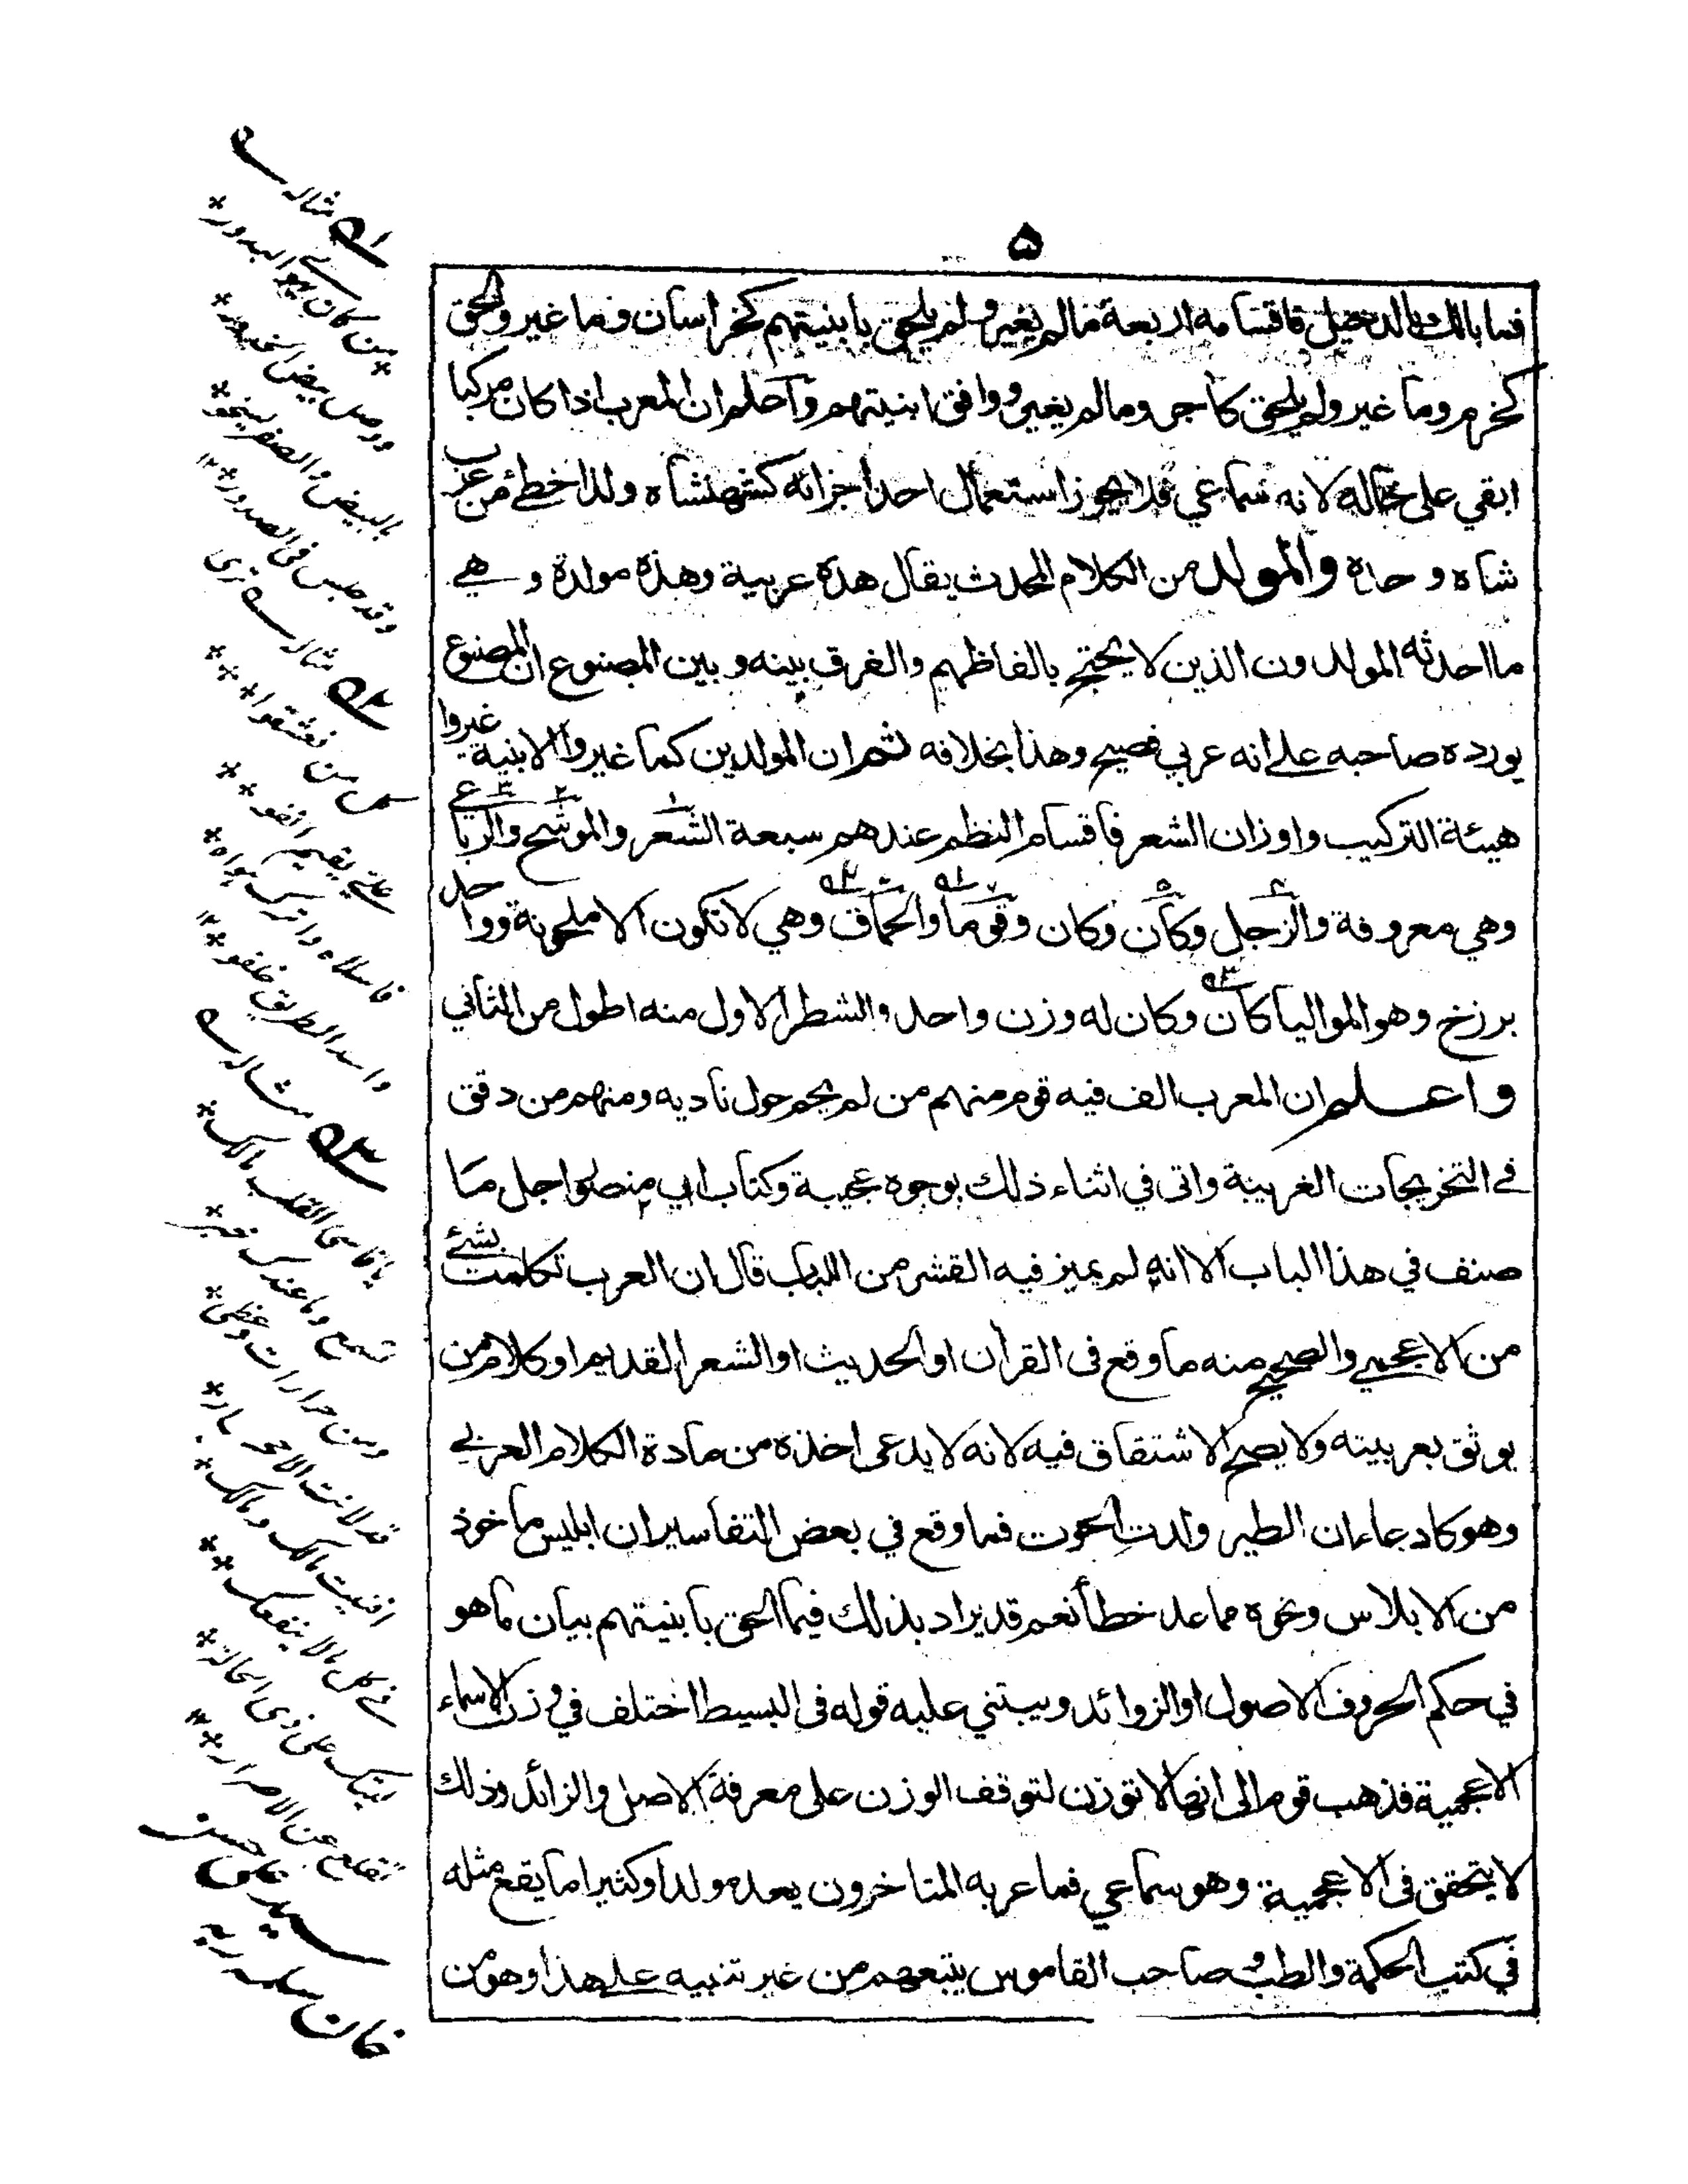 ۵
فما بالك بالدخيل فاقسامه اربعة مالم يغير ولم يلحق بابنيتهم كخراسان وما غير والحق
كخرم وما غير ولم يلحق كآجر ومالم يغير ووافق ابنيتهم وآعلم ان المعرب اذا كان مركبا
ابقي على حاله لانه سماعي فلا يجوز استعمال احد اجزائه كشهنشاه ولذا خطئ من عرب
شاه وحده والمولد من الكلام المحدث يقال هذه عربية وهذه مولدة وهي
ما احدثه المولدون الذين لا يحتج بالفاظهم والفرق بينه وبين المصنوع ان المصنوع
يورده صاحبه على انه عربي فصيح وهذا بخلافه ثم ان المولدين كما غيروا الابنية غيروا
هيئة التركيب واوزان الشعر فاقسام النظم عندهم سبعة الشعر والموشح والرباعي
وهي معروفة والزجل وكان وكان وقوما والحماق وهي لا تكون الا ملحونة وواحد
برزخ وهو المواليا كان وكان له وزن واحد والشطر الاول منه اطول من الثاني
واعلم ان المعرب الف فيه قوم منهم من لم يحم حول ناديه ومنهم من دقق
في التخريجات الغريبة واتى في اثناء ذلك بوجوه عجيبة وكتاب ابي منصور اجل ما
صنف في هذا الباب الا انه لم يميز فيه القشر من اللباب قال ان العرب تكلمت بشئ
من الاعجمي والصحيح منه ما وقع فى القران او الحديث او الشعر القديم او كلام من
يوثق بعربيته ولا يصح الاشتقاق فيه لانه لا يدعى اخذه من مادة الكلام العربي
وهو كادعاء ان الطير ولدت الحوت فما وقع في بعض التفاسير ان ابليس ماخوذ
من الابلاس ونحوه مما عد خطأ نعم قد يراد بذلك فيما الحق بابنيتهم بيان ما هو
في حكم الحروف الاصول او الزوائد ويبتني عليه قوله فى البسيط اختلف في وزن الاسماء
الاعجمية فذهب قوم الى انها لا توزن لتوقف الوزن على معرفة الاصل والزائد وذلك
لا يتحقق فى الاعجمية وهو سماعي فما عربه المتاخرون يعد مولدا وكثيرا ما يقع مثله
في كتب الحكمة والطب وصاحب القاموس يتبعهم من غير تنبيه على هذا وهو من
۱ه مثاله
وقد جلس فى الصدور ۱۲
۲ه مثاله
واسد الطريق خلفو ۱۲
۳ه مثاله
يا قاسى القلب مالك
تسمع وما عندك خبر
ومن حرارات وعظى
قد لانت الاحجار
افنيت مالك ومالك
في كل مالا ينفعك
ليتك على ذى الحالة
تقلع عن الاصرار ۱۲
سيد على حسن
خان سلمه ربه